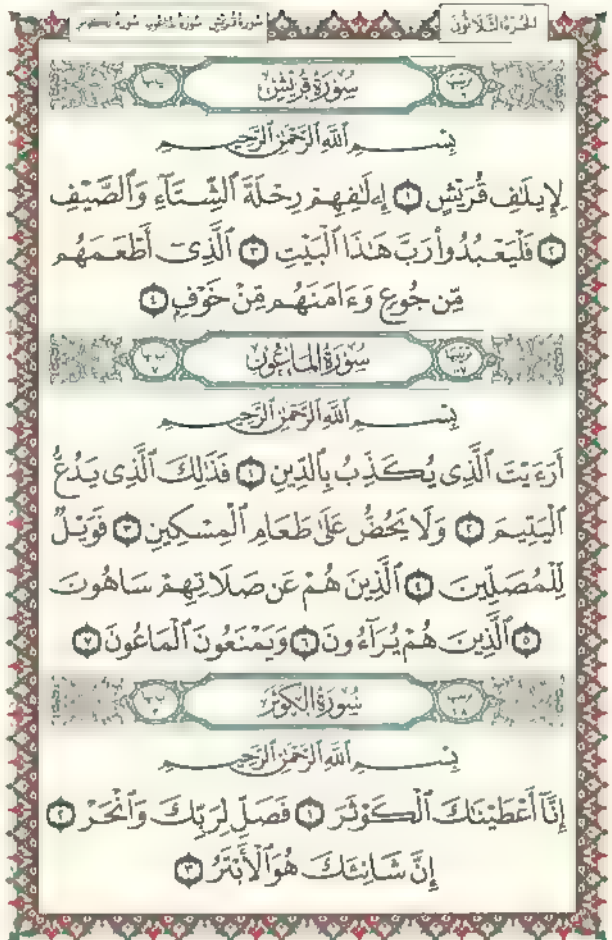 الجزء الثلاثون سورة قريش سورة الماعون سورة الكوثر
سُورَةُ قُرَيْشٍ
بِسْمِ ٱللَّهِ ٱلرَّحْمَٰنِ ٱلرَّحِيمِ
لِإِيلَٰفِ قُرَيْشٍ ١ إِۦلَٰفِهِمْ رِحْلَةَ ٱلشِّتَآءِ وَٱلصَّيْفِ
٢ فَلْيَعْبُدُوا۟ رَبَّ هَٰذَا ٱلْبَيْتِ ٣ ٱلَّذِىٓ أَطْعَمَهُم
مِّن جُوعٍ وَءَامَنَهُم مِّنْ خَوْفٍ ٤
سُورَةُ المَاعُونِ
بِسْمِ ٱللَّهِ ٱلرَّحْمَٰنِ ٱلرَّحِيمِ
أَرَءَيْتَ ٱلَّذِى يُكَذِّبُ بِٱلدِّينِ ١ فَذَٰلِكَ ٱلَّذِى يَدُعُّ
ٱلْيَتِيمَ ٢ وَلَا يَحُضُّ عَلَىٰ طَعَامِ ٱلْمِسْكِينِ ٣ فَوَيْلٌ
لِّلْمُصَلِّينَ ٤ ٱلَّذِينَ هُمْ عَن صَلَاتِهِمْ سَاهُونَ
٥ ٱلَّذِينَ هُمْ يُرَآءُونَ ٦ وَيَمْنَعُونَ ٱلْمَاعُونَ ٧
سُورَةُ الكَوْثَرِ
بِسْمِ ٱللَّهِ ٱلرَّحْمَٰنِ ٱلرَّحِيمِ
إِنَّآ أَعْطَيْنَٰكَ ٱلْكَوْثَرَ ١ فَصَلِّ لِرَبِّكَ وَٱنْحَرْ ٢
إِنَّ شَانِئَكَ هُوَ ٱلْأَبْتَرُ ٣